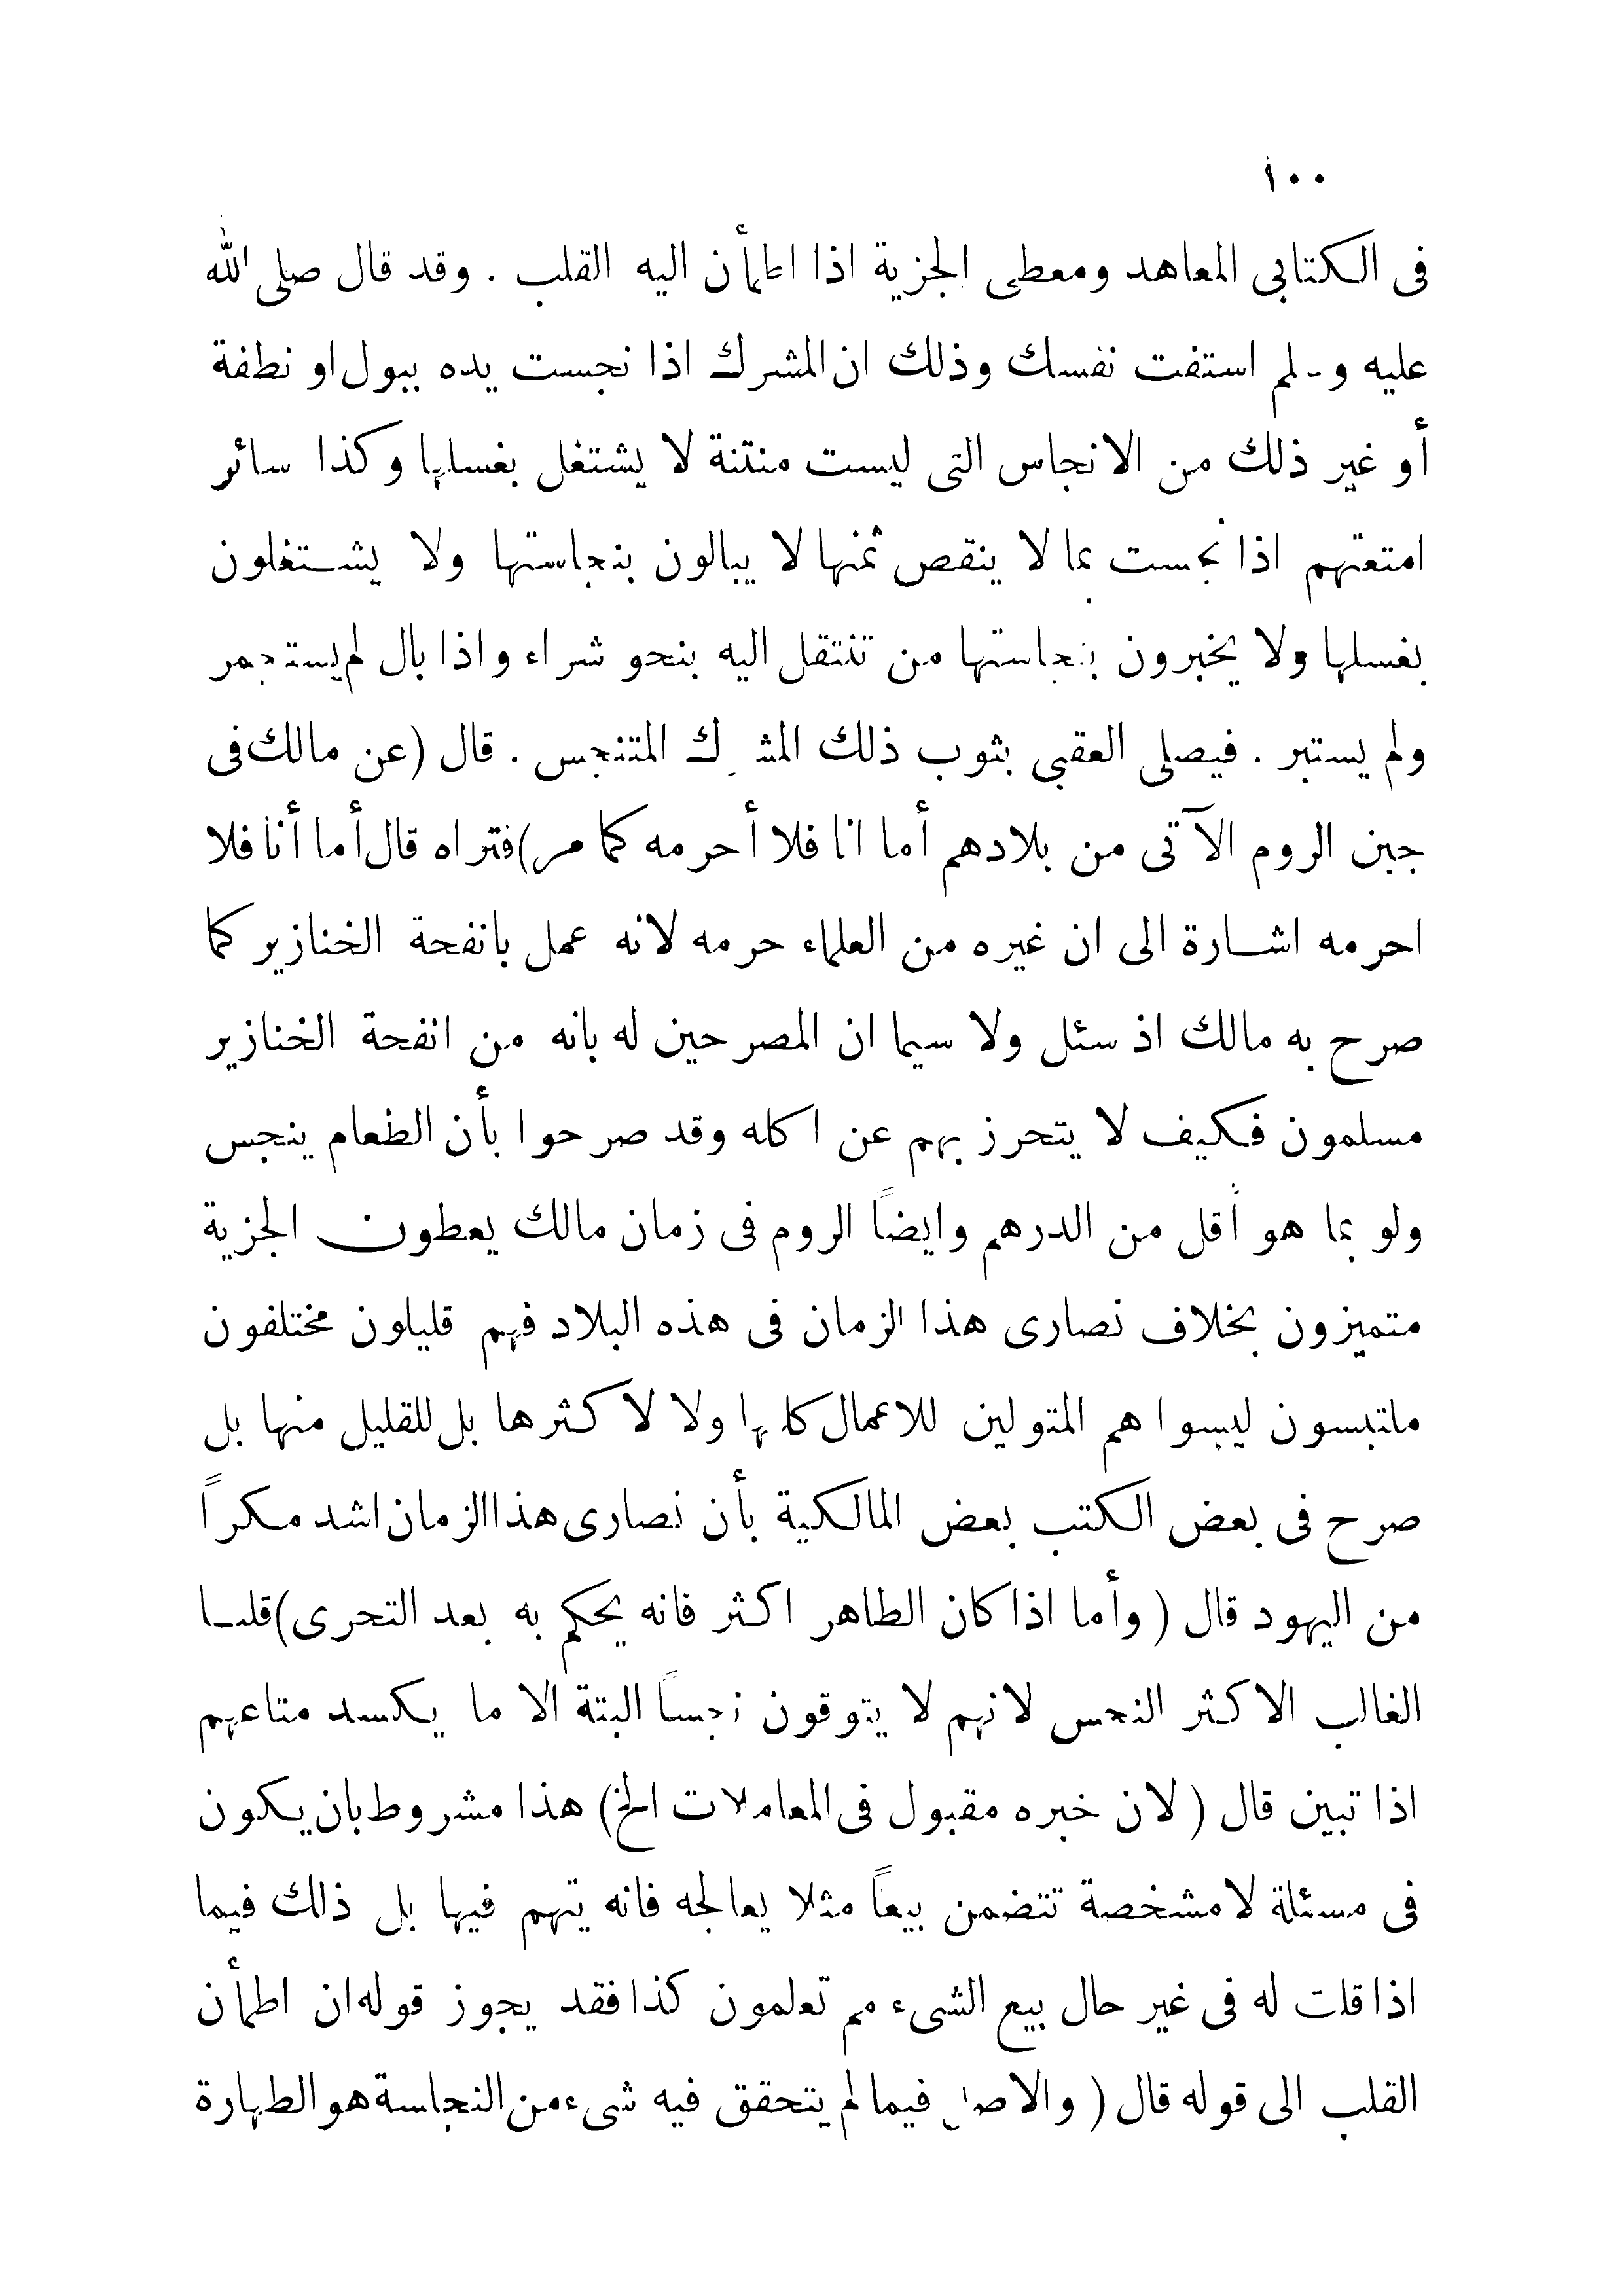 ١٠٠
فى الكتابى المعاهد ومعطى الجزية اذا اطمأن اليه القلب . وقد قال صلى الله
عليه وسلم استفت نفسك وذلك ان المشرك اذا نجست يده ببول او نطفة
أو غير ذلك من الانجاس التى ليست منتنة لا يشتغل بغسلها وكذا سائر
امتعتهم اذا نجست بما لا ينقص ثمنها لا يبالون بنجاستها ولا يشتغلون
بغسلها ولا يخبرون بنجاستها من تنتقل اليه بنحو شراء واذا بال لم يستجمر
ولم يستبر . فيصلى العقبي بثوب ذلك المشرك المتنجس . قال (عن مالك فى
جبن الروم الآتى من بلادهم أما انا فلا أحرمه كما مر) فتراه قال أما أنا فلا
احرمه اشارة الى ان غيره من العلماء حرمه لانه عمل بانفحة الخنازير كما
صرح به مالك اذ سئل ولا سيما ان المصرحين له بانه من انفحة الخنازير
مسلمون فكيف لا يتحرز بهم عن اكله وقد صرحوا بأن الطعام ينجس
ولو بما هو أقل من الدرهم وايضاً الروم فى زمان مالك يعطون الجزية
متميزون بخلاف نصارى هذا الزمان فى هذه البلاد فهم قليلون مختلفون
ملتبسون ليسوا هم المتولين للاعمال كلها ولا لاكثرها بل للقليل منها بل
صرح فى بعض الكتب بعض المالكية بأن نصارى هذا الزمان اشد مكراً
من اليهود قال ( وأما اذا كان الطاهر اكثر فانه يحكم به بعد التحرى) قلنا
الغالب الاكثر النجس لانهم لا يتوقون نجساً البتة الا ما يكسد متاعهم
اذا تبين قال ( لان خبره مقبول فى المعاملات الخ) هذا مشروط بان يكون
فى مسئلة لا مشخصة تتضمن بيعاً مثلا يعالجه فانه يتهم فيها بل ذلك فيما
اذا قلت له فى غير حال بيع الشىء مم تعلمون كذا فقد يجوز قوله ان اطمأن
القلب الى قوله قال ( والاصل فيما لم يتحقق فيه شىء من النجاسة هو الطهارة